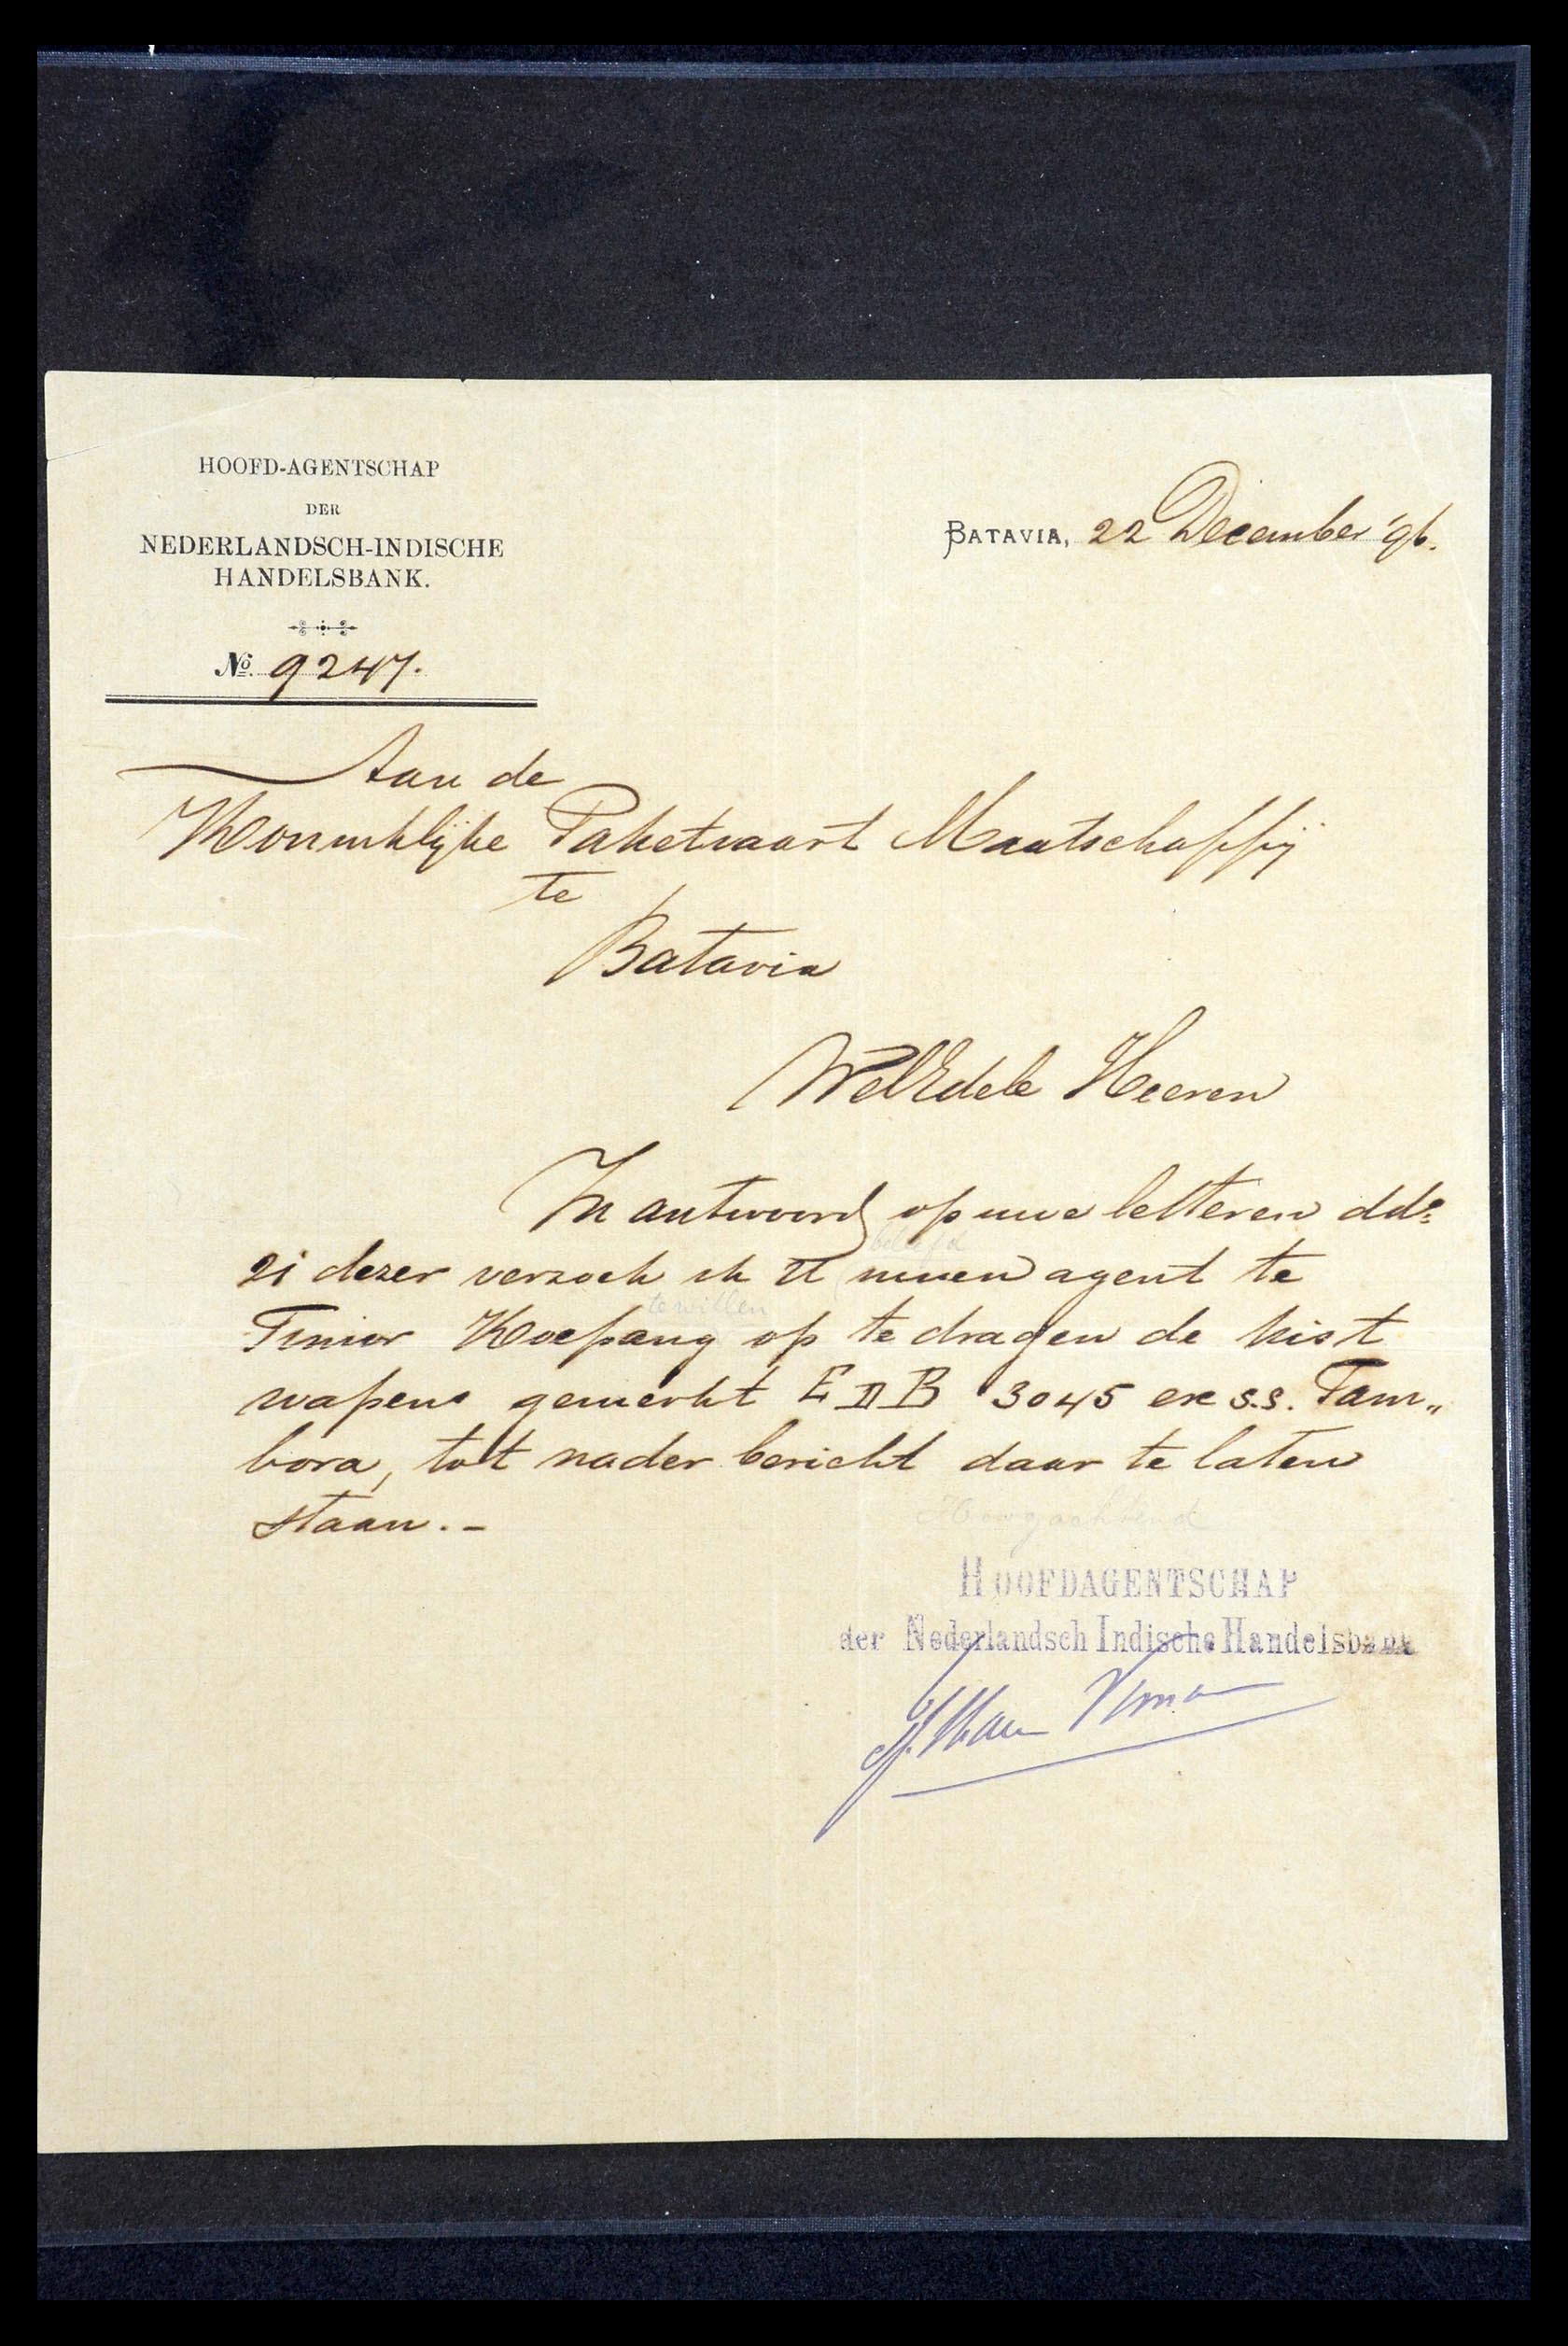 HOOFD-AGENTSCHAP
DER
NEDERLANDSCH-INDISCHE
HANDELSBANK.
No. 9247.
BATAVIA, 22 December '96.
Aan de
Koninklijke Paketvaart Maatschappij
te
Batavia
WelEdele Heeren
In antwoord op uwe letteren dd.
21 dezer verzoek ik U beleefd uwen agent te
Timor Koepang op te willen dragen de kist
wapens gemerkt E D B 3045 ex s.s. Tam„
bora, tot nader bericht daar te laten
staan. -
Hoogachtend
HOOFDAGENTSCHAP
der Nederlandsch Indische Handelsbank